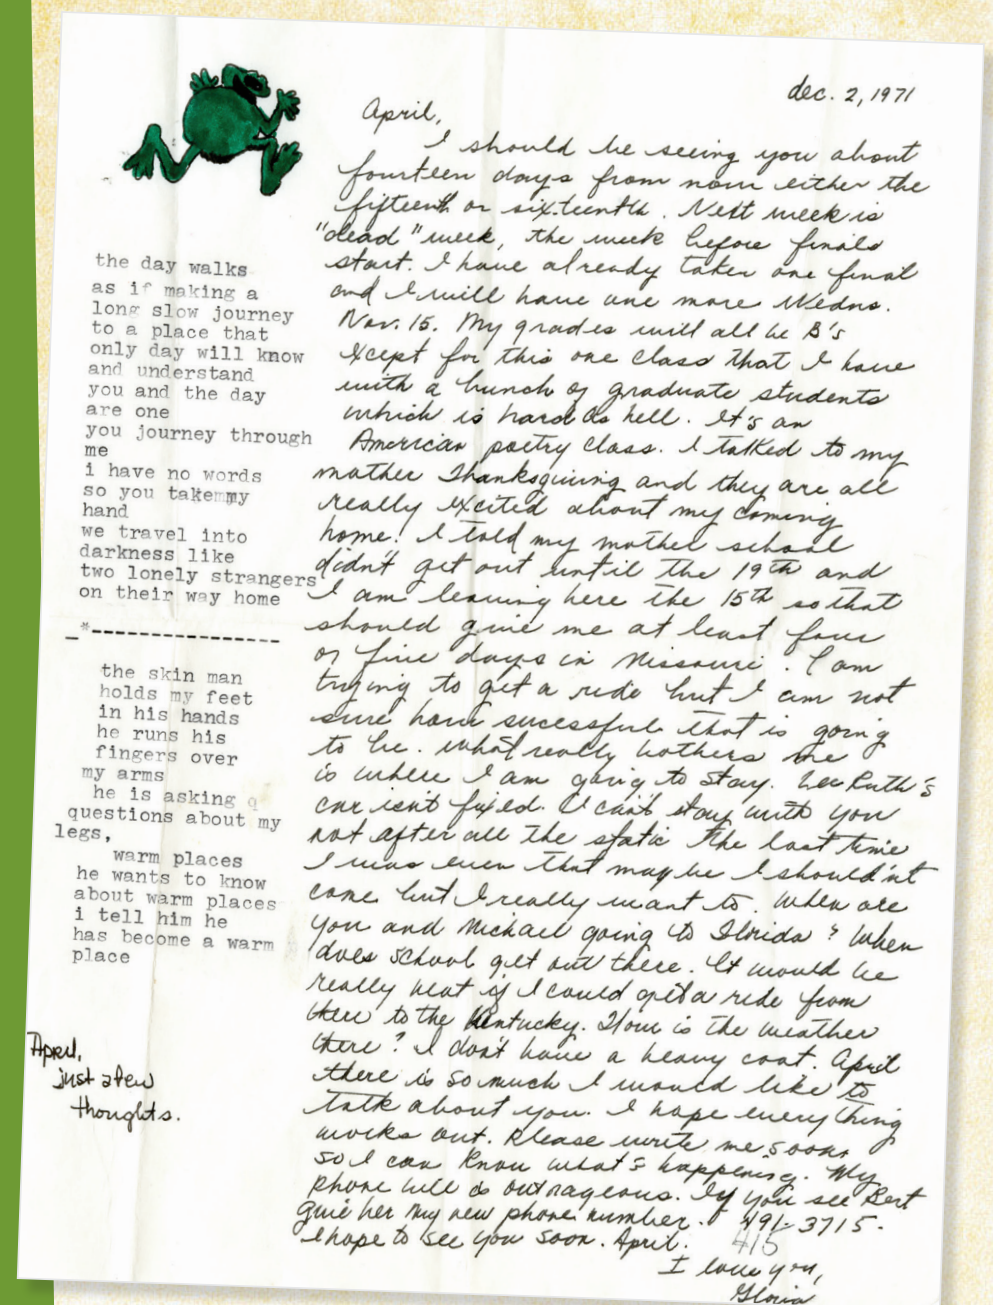 dec. 2, 1971
April,
I should be seeing you about
fourteen days from now either the
fifteenth or sixteenth. Next week is
"dead" week, the week before finals
start. I have already taken one final
and I will have one more Wedns.
Nov. 15. My grades will all be B's
except for this one class that I have
with a bunch of graduate students
which is hard as hell. It's an
American poetry class. I talked to my
mother Thanksgiving and they are all
really excited about my coming
home! I told my mother school
didn't get out until the 19th and
I am leaving here the 15th so that
should give me at least four
or five days in Missouri. I am
trying to get a ride but I am not
sure how sucessful that is going
to be. What really bothers me
is where I am going to stay. Lee Ruth's
car isn't fixed. I can't stay with you
not after all the static the last time
I was even that maybe I should'nt
come but I really want to. When are
you and Michael going to Florida? When
does school get out there. It would be
really neat if I could get a ride from
there to the Kentucky. How is the weather
there? I don't have a heavy coat. April
there is so much I would like to
talk about you. I hope everything
works out. Please write me soon
so I can know what's happening. My
phone bill is outrageous. If you see Bert
give her my new phone number. 491-3715.
I hope to see you soon. April. 415
I love you,
Gloria
the day walks
as if making a
long slow journey
to a place that
only day will know
and understand
you and the day
are one
you journey through
me
i have no words
so you takemmy
hand
we travel into
darkness like
two lonely strangers
on their way home
_*---------------
the skin man
holds my feet
in his hands
he runs his
fingers over
my arms
he is asking q
questions about my
legs,
warm places
he wants to know
about warm places
i tell him he
has become a warm
place
April,
just a few
thoughts.